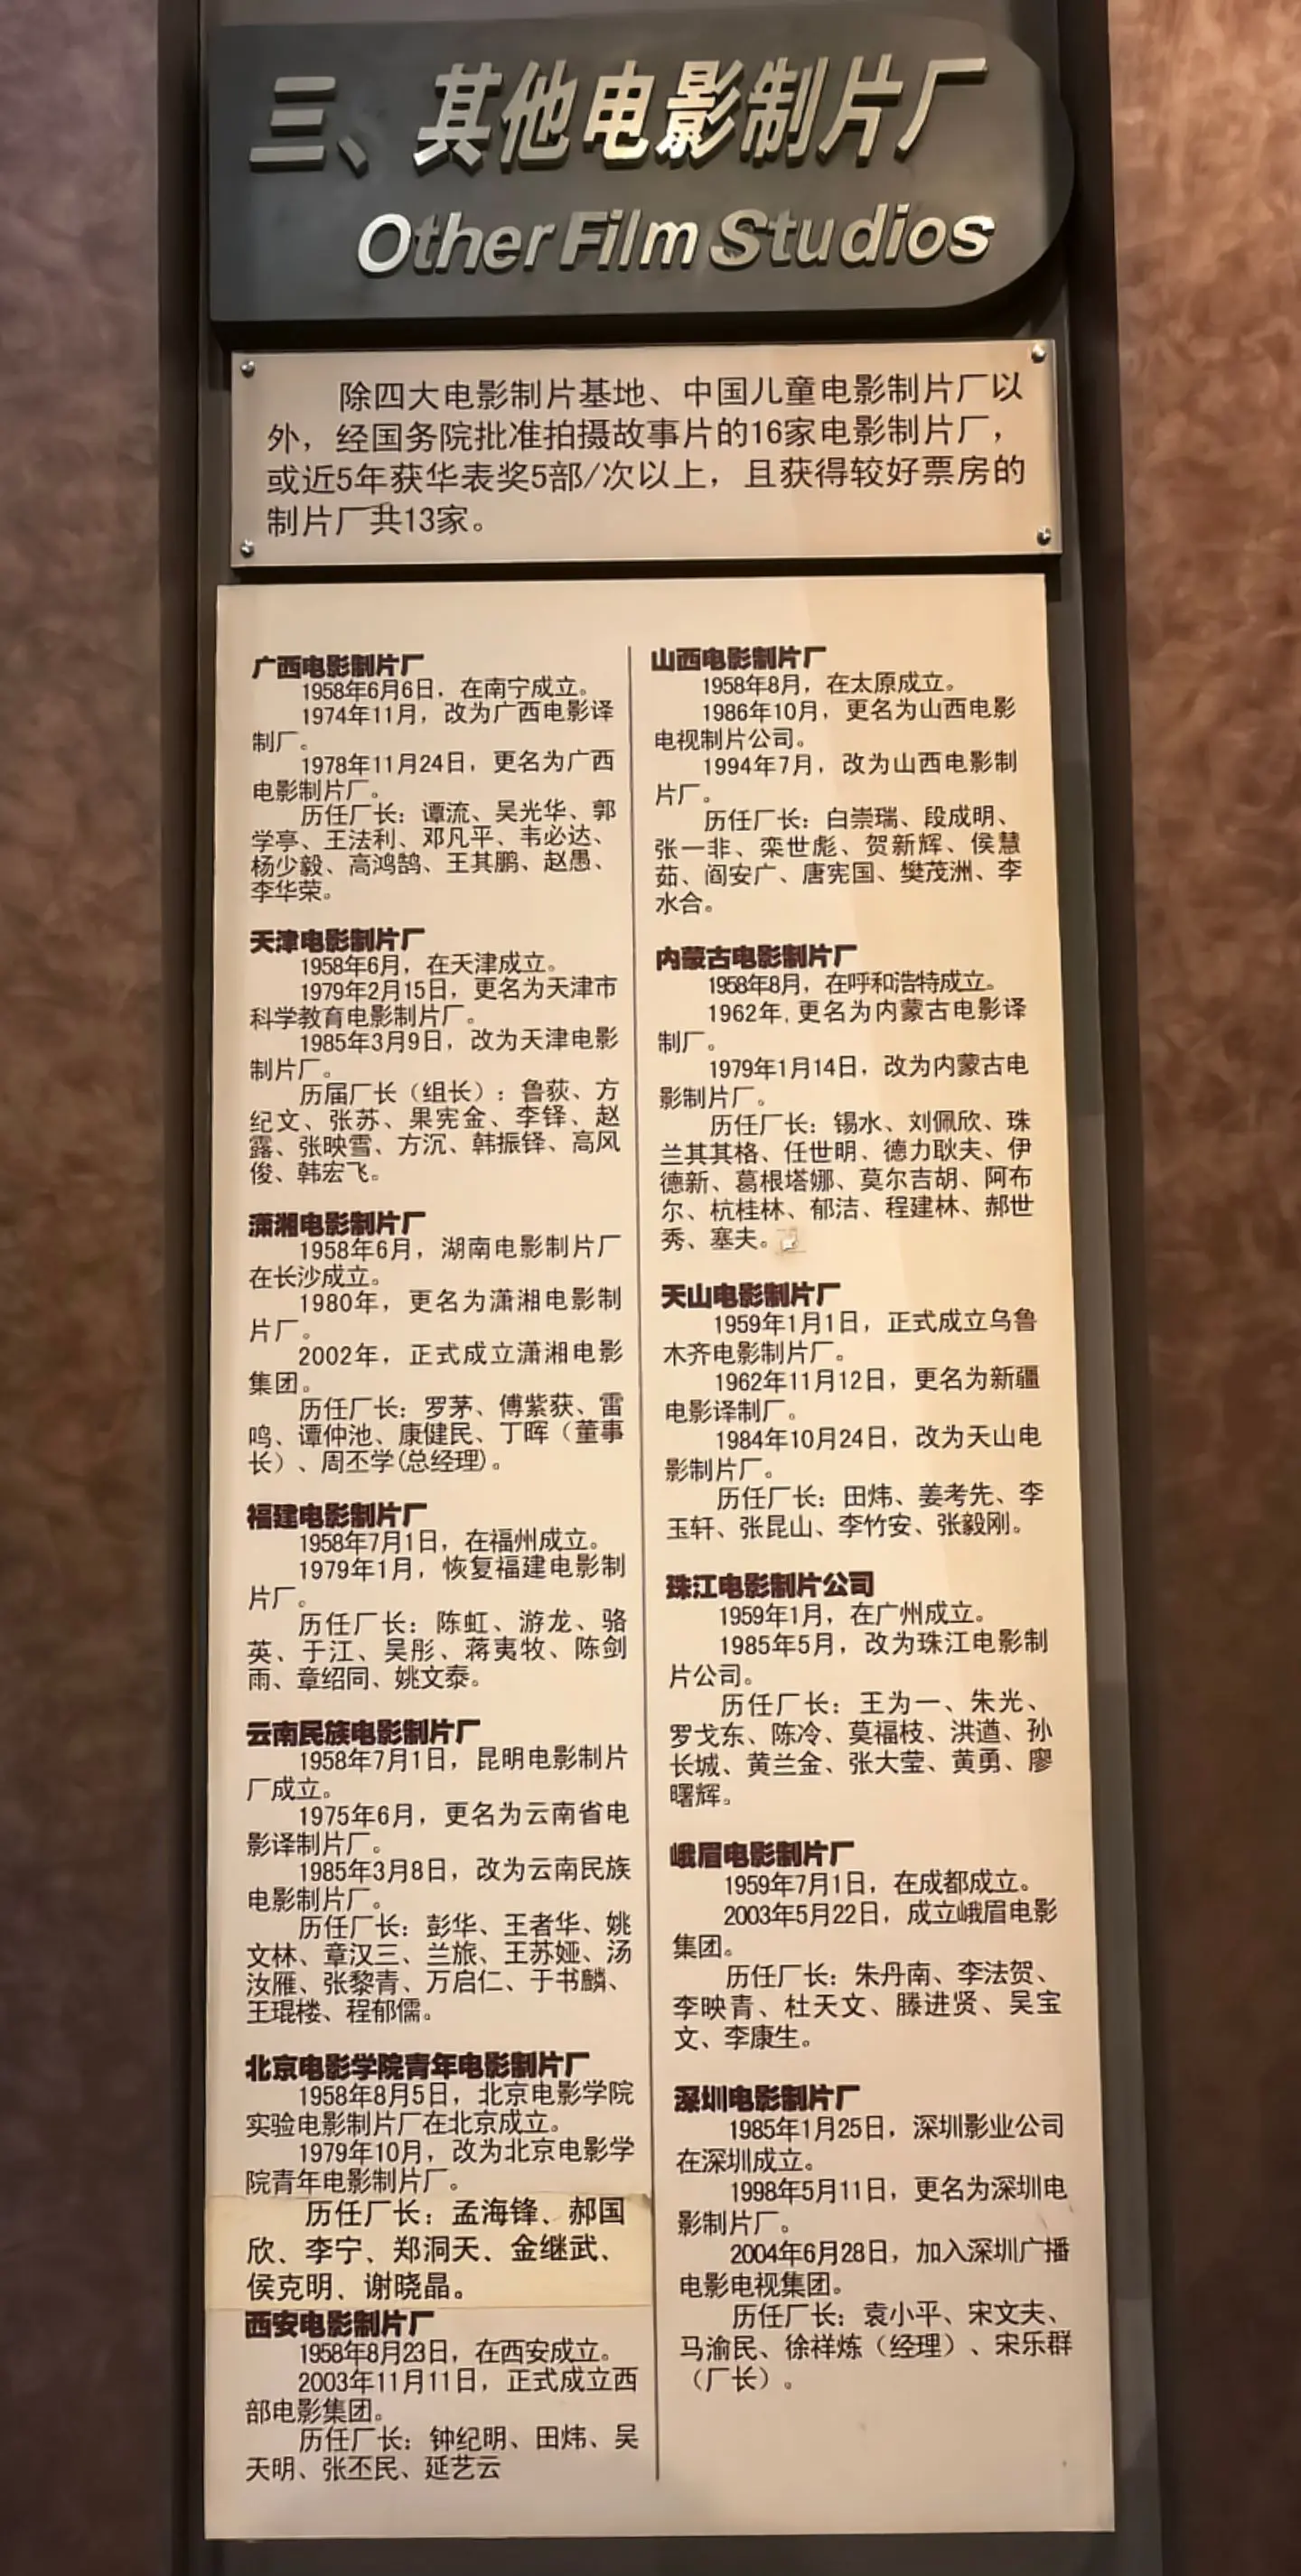 三、其他电影制片厂
Other Film Studios
除四大电影制片基地、中国儿童电影制片厂以
外，经国务院批准拍摄故事片的16家电影制片厂，
或近5年获华表奖5部/次以上，且获得较好票房的
制片厂共13家。
广西电影制片厂
1958年6月6日，在南宁成立。
1974年11月，改为广西电影译
制厂。
1978年11月24日，更名为广西
电影制片厂。
历任厂长：谭流、吴光华、郭
学亭、王法利、邓凡平、韦必达、
杨少毅、高鸿鹄、王其鹏、赵愚、
李华荣。
天津电影制片厂
1958年6月，在天津成立。
1979年2月15日，更名为天津市
科学教育电影制片厂。
1985年3月9日，改为天津电影
制片厂。
历届厂长（组长）：鲁荻、方
纪文、张苏、果宪金、李铎、赵
露、张映雪、方沉、韩振铎、高风
俊、韩宏飞。
潇湘电影制片厂
1958年6月，湖南电影制片厂
在长沙成立。
1980年，更名为潇湘电影制
片厂。
2002年，正式成立潇湘电影
集团。
历任厂长：罗茅、傅紫荻、雷
鸣、谭仲池、康健民、丁晖（董事
长）、周丕学(总经理)。
福建电影制片厂
1958年7月1日，在福州成立。
1979年1月，恢复福建电影制
片厂。
历任厂长：陈虹、游龙、骆
英、于江、吴彤、蒋夷牧、陈剑
雨、章绍同、姚文泰。
云南民族电影制片厂
1958年7月1日，昆明电影制片
厂成立。
1975年6月，更名为云南省电
影译制片厂。
1985年3月8日，改为云南民族
电影制片厂。
历任厂长：彭华、王者华、姚
文林、章汉三、兰旅、王苏娅、汤
汝雁、张黎青、万启仁、于书麟、
王琨楼、程郁儒。
北京电影学院青年电影制片厂
1958年8月5日，北京电影学院
实验电影制片厂在北京成立。
1979年10月，改为北京电影学
院青年电影制片厂。
历任厂长：孟海锋、郝国
欣、李宁、郑洞天、金继武、
侯克明、谢晓晶。
西安电影制片厂
1958年8月23日，在西安成立。
2003年11月11日，正式成立西
部电影集团。
历任厂长：钟纪明、田炜、吴
天明、张丕民、延艺云
山西电影制片厂
1958年8月，在太原成立。
1986年10月，更名为山西电影
电视制片公司。
1994年7月，改为山西电影制
片厂。
历任厂长：白崇瑞、段成明、
张一非、栾世彪、贺新辉、侯慧
茹、阎安广、唐宪国、樊茂洲、李
水合。
内蒙古电影制片厂
1958年8月，在呼和浩特成立。
1962年,更名为内蒙古电影译
制厂。
1979年1月14日，改为内蒙古电
影制片厂。
历任厂长：锡水、刘佩欣、珠
兰其其格、任世明、德力耿夫、伊
德新、葛根塔娜、莫尔吉胡、阿布
尔、杭桂林、郁洁、程建林、郝世
秀、塞夫。
天山电影制片厂
1959年1月1日，正式成立乌鲁
木齐电影制片厂。
1962年11月12日，更名为新疆
电影译制厂。
1984年10月24日，改为天山电
影制片厂。
历任厂长：田炜、姜考先、李
玉轩、张昆山、李竹安、张毅刚。
珠江电影制片公司
1959年1月，在广州成立。
1985年5月，改为珠江电影制
片公司。
历任厂长：王为一、朱光、
罗戈东、陈冷、莫福枝、洪遒、孙
长城、黄兰金、张大莹、黄勇、廖
曙辉。
峨眉电影制片厂
1959年7月1日，在成都成立。
2003年5月22日，成立峨眉电影
集团。
历任厂长：朱丹南、李法贺、
李映青、杜天文、滕进贤、吴宝
文、李康生。
深圳电影制片厂
1985年1月25日，深圳影业公司
在深圳成立。
1998年5月11日，更名为深圳电
影制片厂。
2004年6月28日，加入深圳广播
电影电视集团。
历任厂长：袁小平、宋文夫、
马渝民、徐祥炼（经理）、宋乐群
（厂长）。